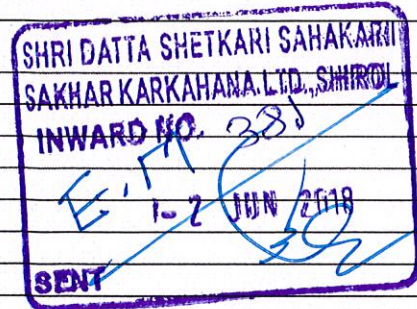 SHRI DATTA SHETKARI SAHAKARI
SAKHAR KARKAHANA.LTD.,SHIROL
INWARD NO. 381
E.M
1-2 JUN 2018
SENT